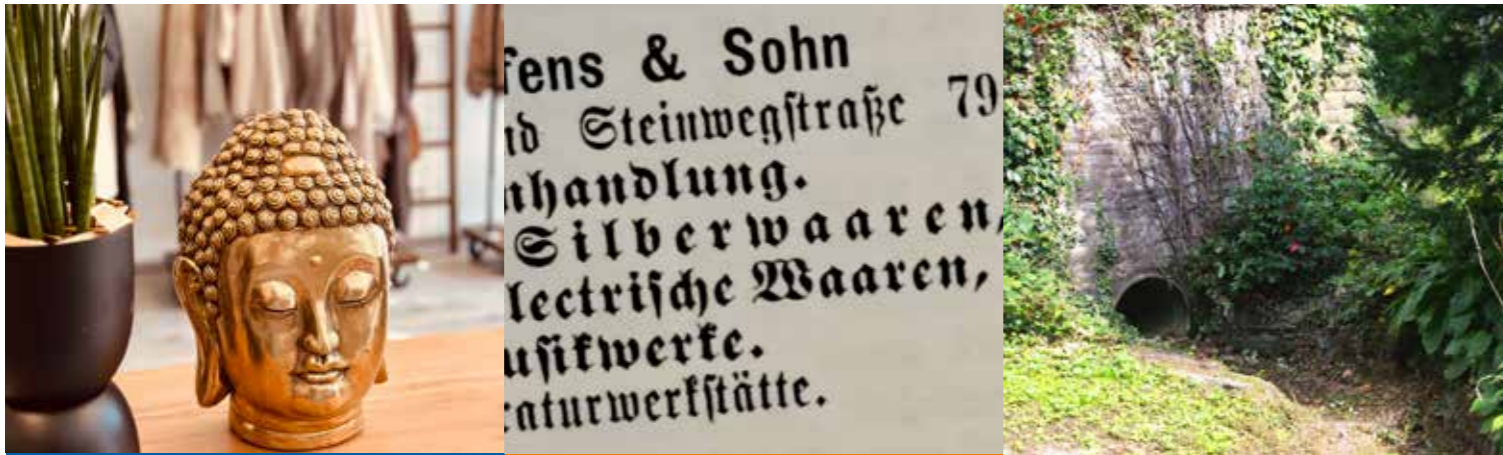 fens & Sohn
nd Steinwegſtraße 79
nhandlung.
Silberwaaren,
lectriſche Waaren,
uſikwerke.
raturwerkſtätte.